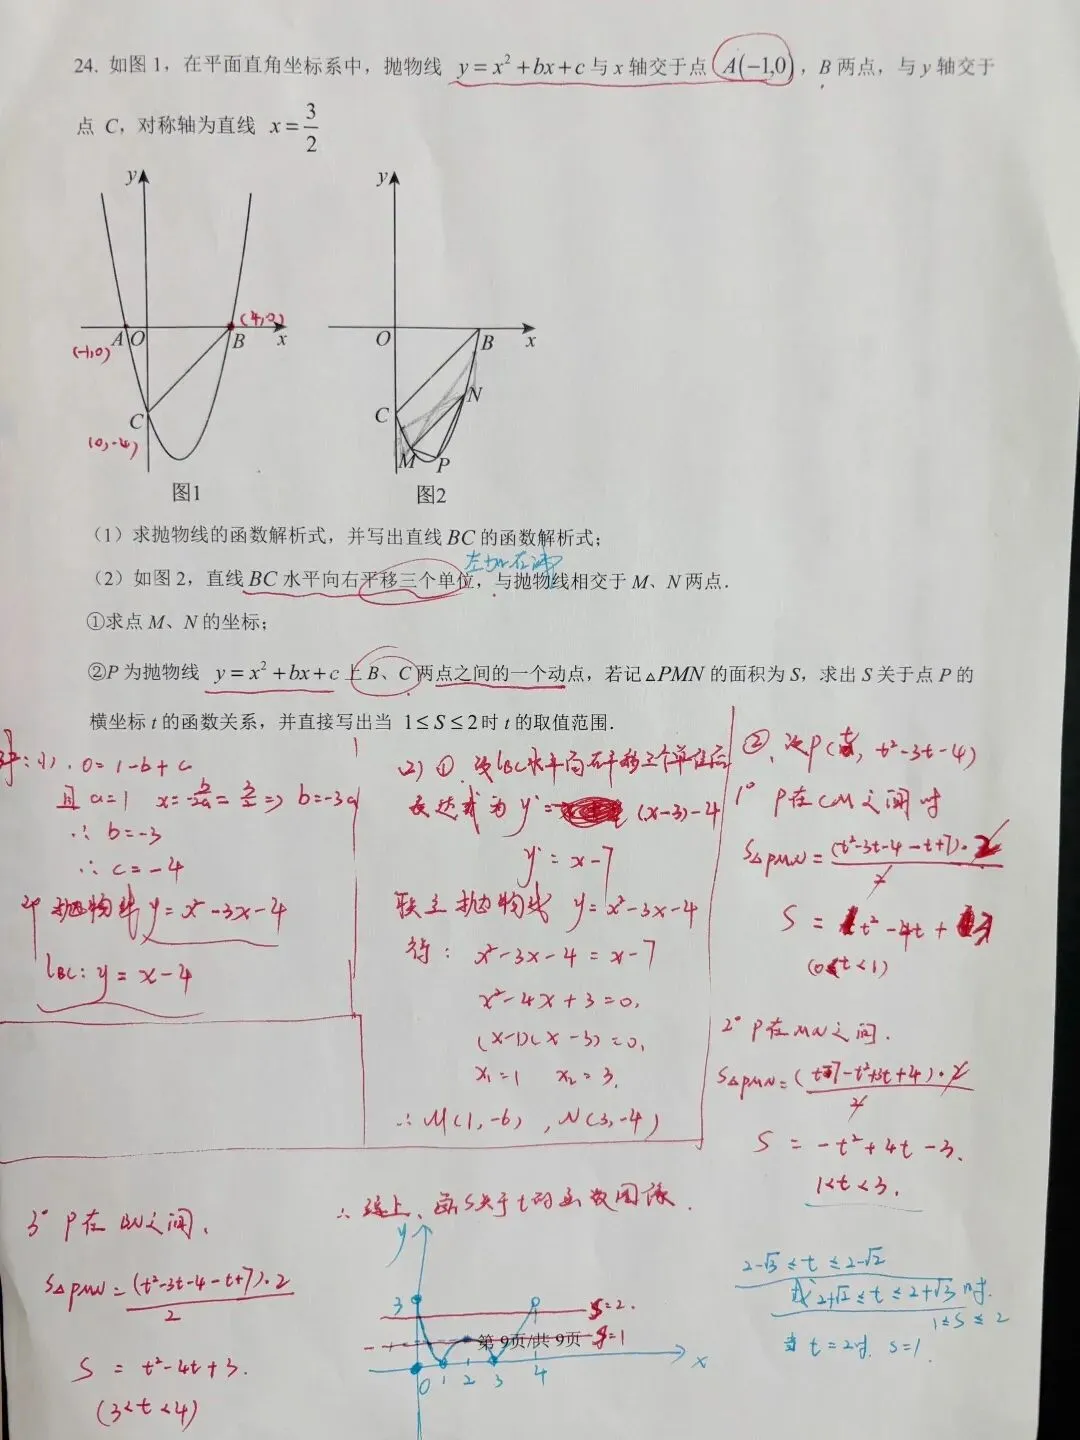 24. 如图 1，在平面直角坐标系中，抛物线 y=x²+bx+c 与 x 轴交于点 A(−1,0)，B 两点，与 y 轴交于
点 C，对称轴为直线 x=3/2
y
y
(4,0)
A O B x
(-1,0)
O B x
C
(0,-4)
C N
M P
图1
图2
（1）求抛物线的函数解析式，并写出直线 BC 的函数解析式；
左加右减
（2）如图 2，直线 BC 水平向右平移三个单位，与抛物线相交于 M、N 两点．
①求点 M、N 的坐标；
②P 为抛物线 y=x²+bx+c 上 B、C 两点之间的一个动点，若记△PMN 的面积为 S，求出 S 关于点 P 的
横坐标 t 的函数关系，并直接写出当 1≤S≤2 时 t 的取值范围．
解：(1). 0=1-b+c
且 a=1 x=-b/2a=3/2 => b=-3a
∴ b=-3
∴ c=-4
即 抛物线 y=x²-3x-4
lBC: y=x-4
(2) ①. 设lBC水平向右平移三个单位后
表达式为 y'= (x-3)-4
y'=x-7
联立 抛物线 y=x²-3x-4
得： x²-3x-4=x-7
x²-4x+3=0,
(x-1)(x-3)=0,
x₁=1 x₂=3.
∴ M(1,-6) , N(3,-4)
②. 设P(t, t²-3t-4)
1° P在CM之间时
S△PMN=(t²-3t-4-t+7)·2/2
S = t²-4t+3
(0<t<1)
2° P在MN之间.
S△PMN=(t-7-t²+3t+4)·2/2
S = -t²+4t-3.
1<t<3.
3° P在BN之间.
S△PMN=(t²-3t-4-t+7)·2/2
S = t²-4t+3.
(3<t<4)
∴ 综上，画S关于t的函数图像.
y
3
S=2.
S=1
第 9页/共 9页
0 1 2 3 4 x
2-√3≤t≤2-√2
或 2+√2≤t≤2+√3时.
1≤S≤2
当 t=2时. S=1.